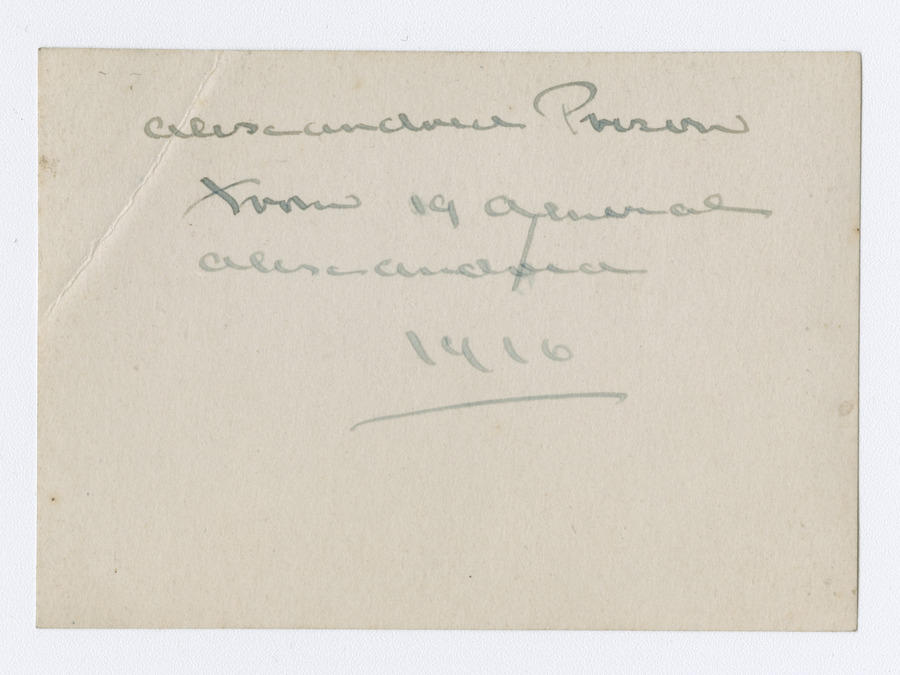 Alexandria Prison
from 19 General
Alexandria
1916